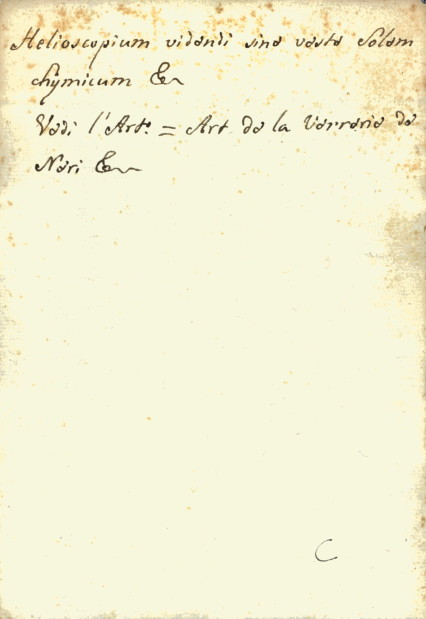 Helioscopium videndi sine veste Solem
chymicum &c
Vedi l'Art.o = Art de la Verrerie de
Neri &c
C